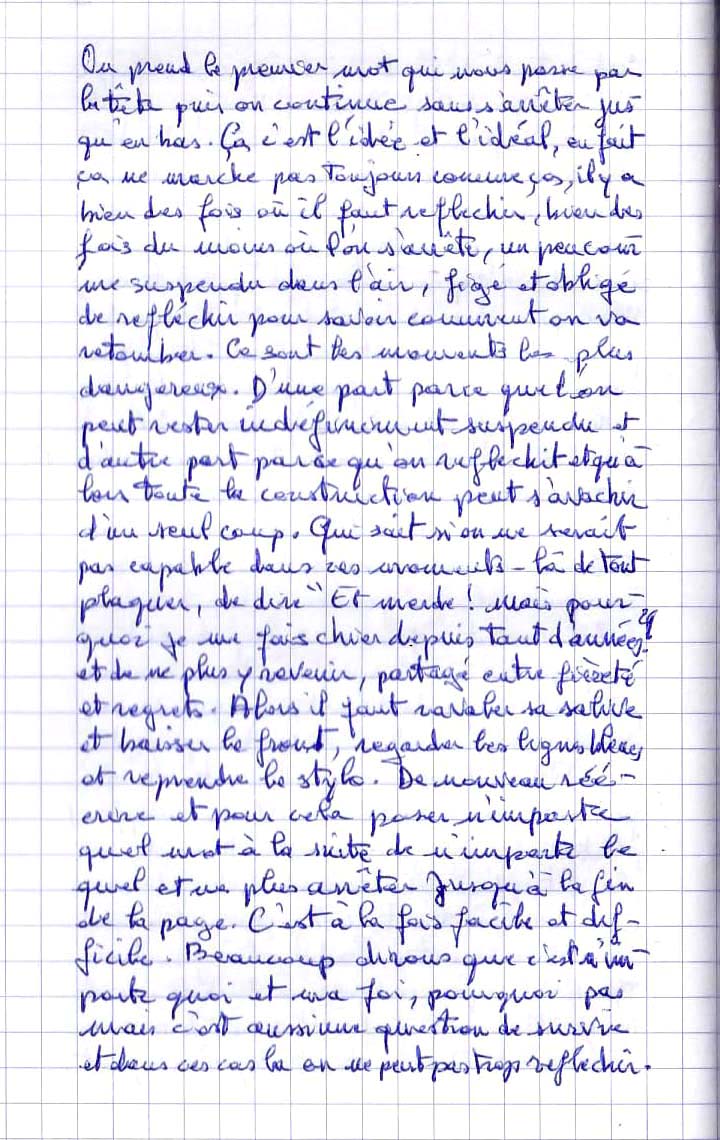 On prend le premier mot qui nous passe par
la tête puis on continue sans s'arrêter jus
qu'en bas. Ça c'est l'idée et l'idéal, en fait
ça ne marche pas toujours comme ça, il y a
bien des fois où il faut reflechir, bien des
fois du moins où l'on s'arrête, un peu com
me suspendu dans l'air, figé et obligé
de refléchir pour savoir comment on va
retomber. Ce sont les moments les plus
dangereux. D'une part parce que l'on
peut rester indéfiniment suspendu et
d'autre part parce qu'on reflechit et qu'a
lors toute la construction peut s'avachir
d'un seul coup. Qui sait si on ne serait
pas capable dans ces moments-là de tout
plaquer, de dire "Et merde ! Mais pour-
quoi je me fais chier depuis tant d'années"
et de ne plus y revenir, partagé entre fièreté
et regrets. Alors il faut ravaler sa salive
et baisser le front, regarder les lignes bleues
et reprendre le stylo. De nouveau réé-
crire et pour cela poser n'importe
quel mot à la suite de n'importe le
quel et ne plus arrêter jusqu'à la fin
de la page. C'est à la fois facile et dif-
ficile. Beaucoup dirons que c'est n'im-
porte quoi et ma foi, pourquoi pas
mais c'est aussi une question de survie
et dans ces cas la on ne peut pas trop reflechir.